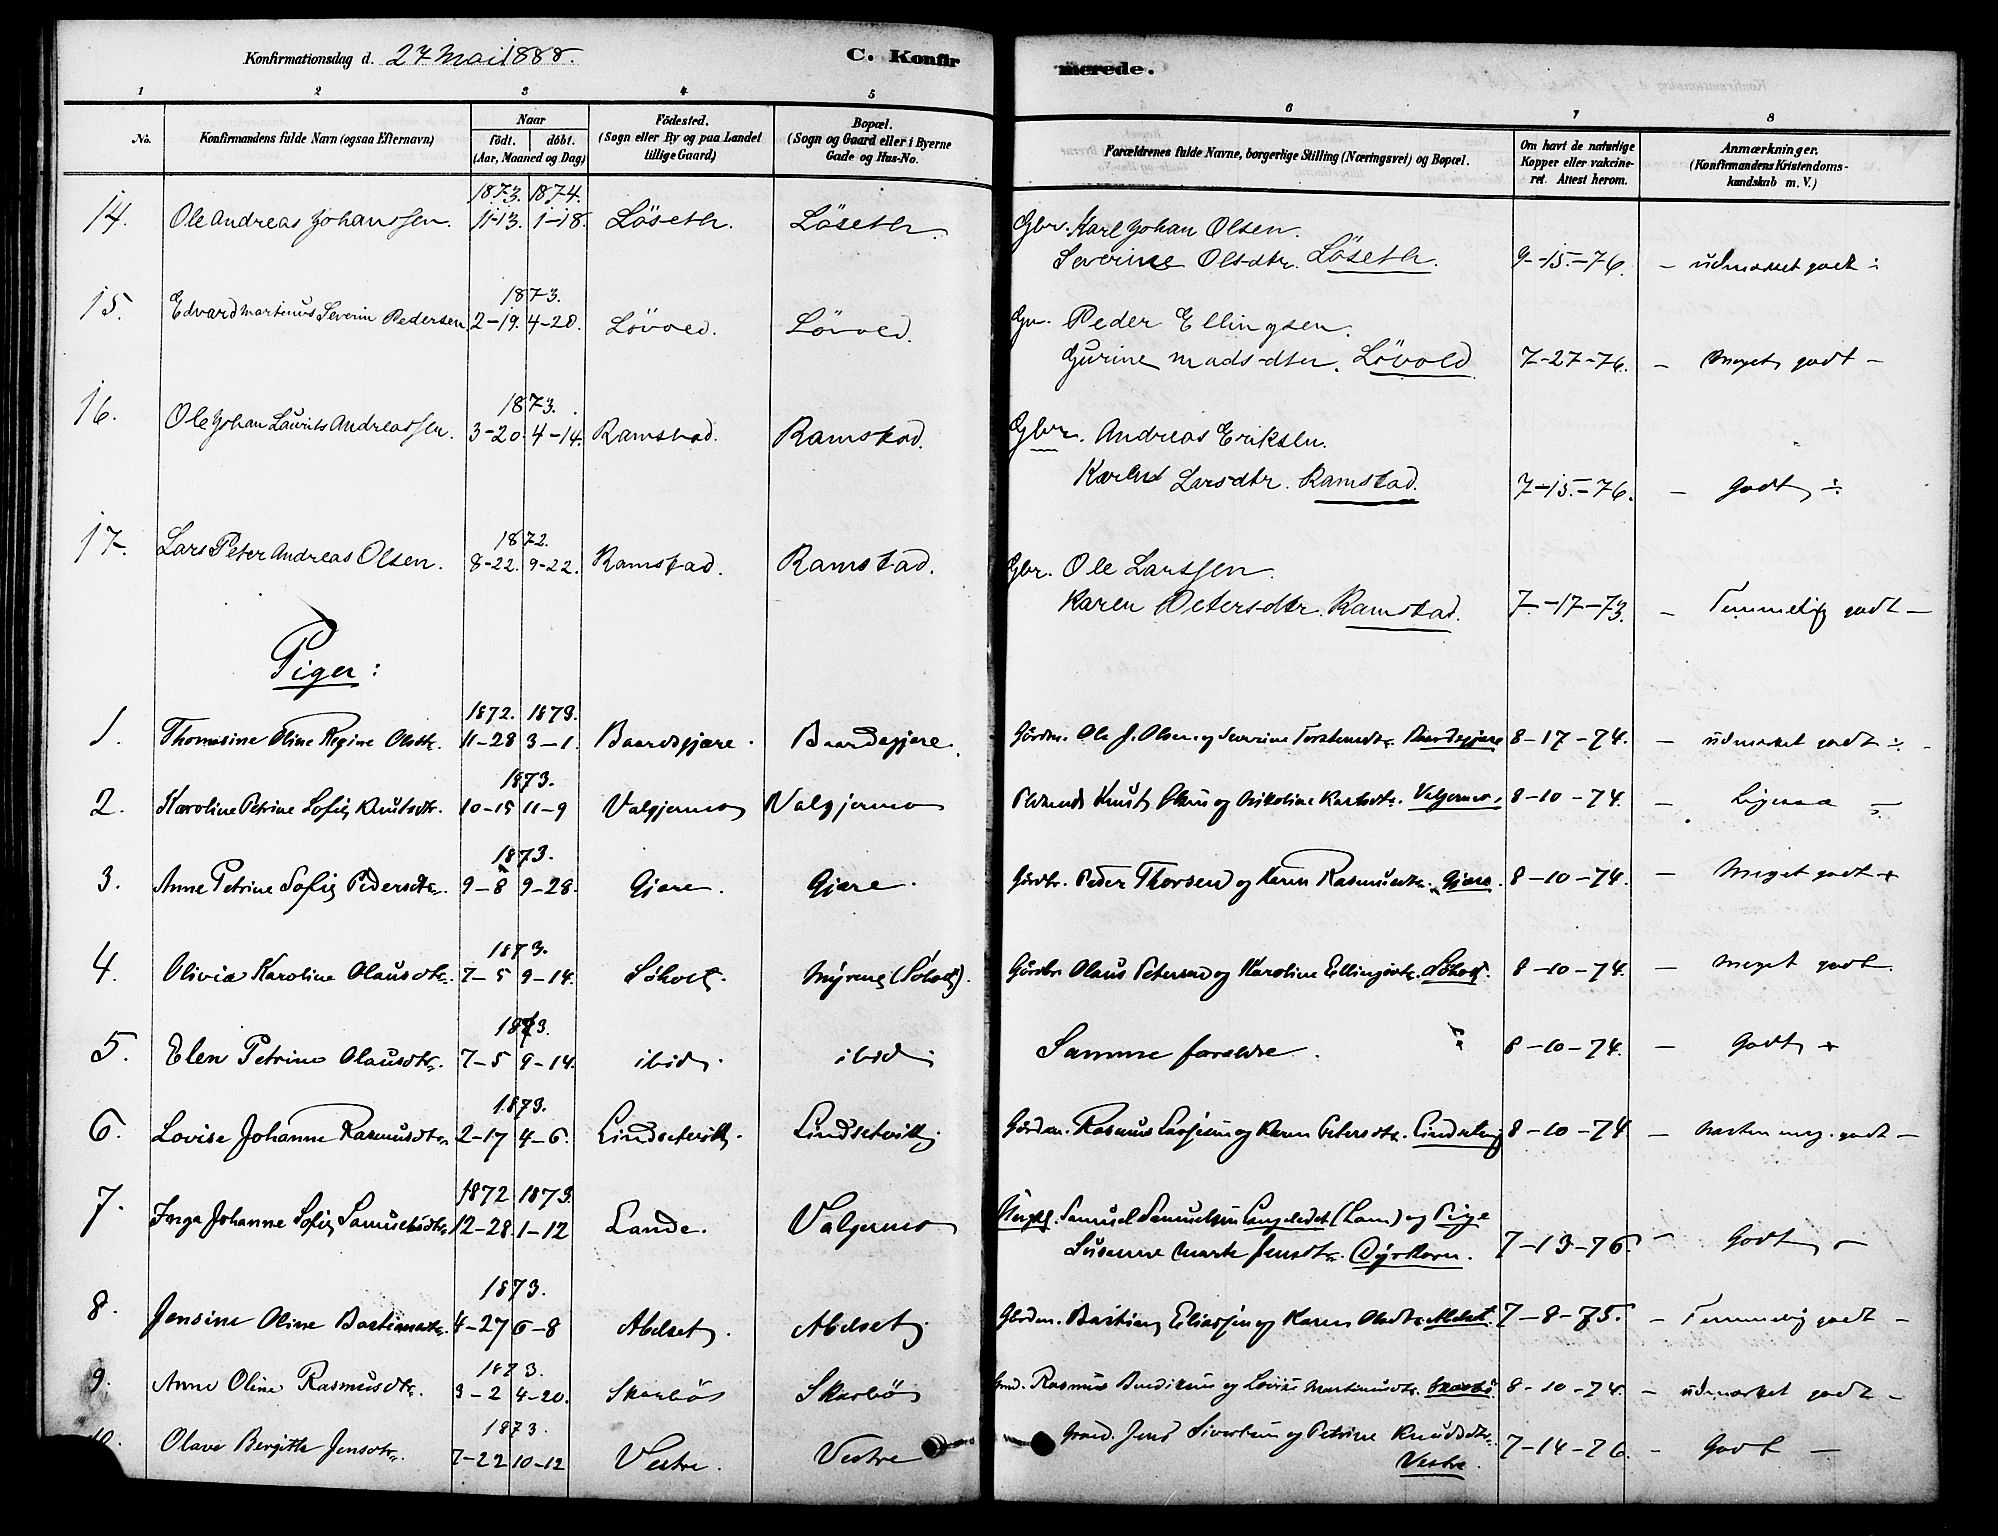 Konfirmationsdag d. 27 Mai 1888.
C. Konfirmerede.
1 2 3 4 5 6 7 8
No. Konfirmandens fulde Navn (ogsaa Efternavn)
Naar födt. döbt. (Aar, Maaned og Dag)
Födested. (Sogn eller By og paa Landet tillige Gaard)
Bopæl. (Sogn og Gaard eller i Byerne Gade og Hus-No.
Forældrenes fulde Navne, borgerlige Stilling (Næringsvei) og Bopæl.
Om havt de naturlige Kopper eller vakcineret. Attest herom.
Anmærkninger. (Konfirmandens Kristendomskundskab m. V.)
1873. 1874.
14. Ole Andreas Johanssen. 11-13. 1-18. Löseth. Löseth. Gbr. Karl Johan Olsen.
Severine Olsdtr. Löseth. 9-15.-76. - udmærket godt ÷
1873.
15. Edvard Martinus Severin Pedersen 2-19. 4-20. Lövold. Lövold. Gn. Peder Ellingsen.
Gurine Madsdtr. Lövold 7-27-76. - Meget godt -
1873.
16. Ole Johan Laurits Andreassen. 3-20. 4-14. Ramstad. Ramstad. Gbr. Andreas Eriksen.
Larsdtr. Ramstad. 7-15.-76. - Godt ÷
1872.
17. Lars Peter Andreas Olsen. 8-22. 9-22. Ramstad. Ramstad. Gbr. Ole Larssen.
Karen Petersdtr. Ramstad. 7-17-73. - Temmelig godt -
Piger:
1872. 1873.
1. Thomasine Oline Regine Olsdtr. 11-28 3-1. Baardsgjære. Baardsgjære. Gårdm. Ole J. Olsen og Severine Torstensdtr. Baardsgjære 8-17-74. - udmærket godt ÷
1873.
2. Karoline Petrine Sofie Knutsdtr. 10-15 11-9 Valgjermo Valgjermo Knut Olsen og Nikoline Karlsdtr. Valgjermo. 8-10-74. - Ligesaa -
1873.
3. Anne Petrine Sofie Pedersdtr. 9-8 9-28. Gjære. Gjære. Gårdbr. Peder Thorsen og Karen Rasmusdtr. Gjære. 8-10-74. - Meget godt +
1873.
4. Olivia Karoline Olausdtr. 7-5 9-14. Söholt. Myrene (Söholt). Gårdbr. Olaus Petersen og Karoline Ellingsdtr. Söholt. 8-10-74. - Meget godt.
1873.
5. Elen Petrine Olausdtr. 7-5 9-14. ibid. ibid. Samme forældre. 8-10-74. - Godt +
1873.
6. Lovise Johanne Rasmusdtr. 2-17 4-6. Lindsetvik. Lindsetvik. Gårdm. Rasmus og Karen Petersdtr. 8-10-74 - næsten meg. godt -
1872 1873.
7. Inga Johanne Sofie Samuelsdtr. 12-28. 1-12 Lande. Valgermo Ungk. Samuel Samuelsen (Lam) og Pige
Susanne Marte Jensdtr. Dyrkorn. 7-13-76. - Godt -
1873.
8. Jensine Oline Bastiansdtr. 4-27 6-8 Abelset. Abelset. Gårdm. Bastian Eliassen og Karen Olsdtr. Abelset. 7-8-75. - Temmelig godt -
1873.
9. Anne Oline Rasmusdtr. 3-2 4-20. Skarbö Skarbö Gmd. Rasmus Benediksen og Lovise Martinusdtr. Skarbö 8-10-74. - udmærket godt -
1873.
10. Olave Bergitte Jensdtr. 7-22 10-12 Vestre. Vestre Gmd. Jens Sivertsen og Petrine Knudsdtr.
Vestre. 7-14-76. - Godt -